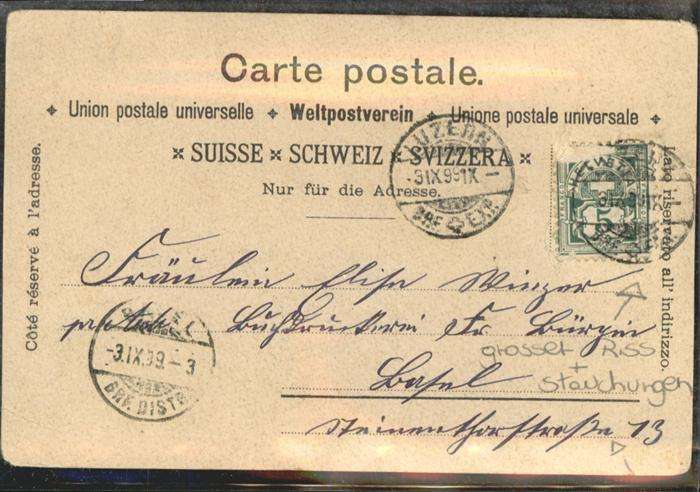 Carte postale.
✦ Union postale universelle ✦ Weltpostverein ✦ Unione postale universale ✦
× SUISSE × SCHWEIZ × SVIZZERA ×
Nur für die Adresse.
Côté réservé à l'adresse.
Lato riservato all' indirizzo.
LUZERN
-3.IX.99.IX-
BRF. EXP.
LUZERN
BASEL
-3.IX.99.-3
BRF. DISTR.
Fräulein Elise Winzer
Buchdruckerei Fr. Bürgin
Basel
Steinenthorstraße 13
grosser Riss
+
Stauchungen